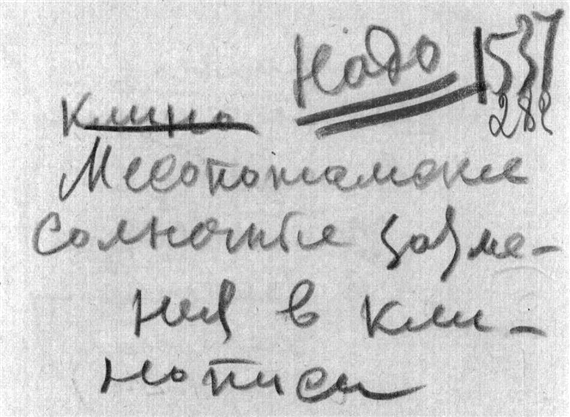 Надо 1537
282
Клино
Месопотамские
солнечные затме-
ния в кли-
нописи